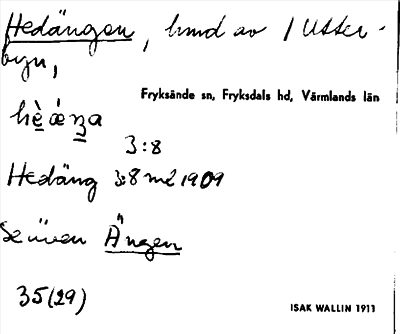 Hedängen, hmd av 1 Utter-
byn,
Fryksände sn, Fryksdals hd, Värmlands län
hè̱ áŋa
3:8
Hedäng 3:8 md 1909
Se även Ängen
35(29)
ISAK WALLIN 1911